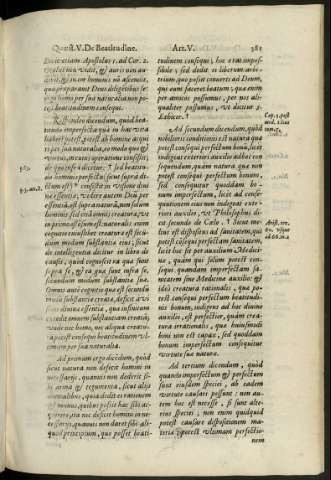 Quæst. V. De Beatitudine.
Art. V.
381
Dicit etiam Apostolus 1. ad Cor. 2.
Oculus non vidit, & auris non au-
divit, & in cor hominis nõ ascendit,
quæ præparavit Deus diligentibus se.
ergo homo per sua naturalia non po-
test beatitudinem consequi.
Respondeo dicendum, quòd bea-
titudo imperfecta quæ in hac vita
haberi potest, potest ab homine acqui-
ri per sua naturalia, eo modo quo &
virtus, in cuius operatione consistit,
de quo infrà dicetur. sed beatitu-
do hominis perfecta (sicut suprà di-
ctum est) consistit in visione divi-
næ essentiæ, videre autem Deũ per
essentiã, est suprà naturã, non solum
hominis sed etiã omnis creaturæ, vt
in primo ostensum est, naturalis enim
cognitio cuiuslibet creaturæ est secũ-
dum modum substantiæ eius, sicut
de intelligentia dicitur in libro de
causis, quòd cognoscit ea quæ sunt
supra se, & ea quæ sunt infra se,
secundum modum substantiæ suæ.
Omnis autem cognitio quæ est secundũ
modũ substantiæ creatæ, deficit à vi-
sione divinæ essentiæ, quæ in infinitum
excedit omnem substantiam creatã,
vnde nec homo, nec aliqua creatu-
ra potest consequi beatitudinem vl-
timam per sua naturalia.
Ad primum ergo dicendum, quòd
sicut natura non deficit homini in
necessarijs, quamvis non dederit si-
bi arma & tegumenta, sicut alijs
animalibus, quia dedit ei rationem
& manus, quibus possit hæc sibi ac-
quirere, ita nec deficit homini in ne-
cessarijs, quamvis non daret sibi ali-
quod principium, quo posset beati-
tudinem consequi, hoc enim impos-
sibile; sed dedit ei liberum arbitri-
um, quo possit converti ad Deum,
qui eum faceret beatum; quæ enim
per amicos possumus, per nos ali-
qualiter possumus, vt dicitur 3.
Ethicor.
Ad secundum dicendum, quòd
nobilioris conditionis est natura quæ
potest consequi perfectũ bonũ, licet
indigeat exteriori auxilio ad hoc cõ-
sequendum, quàm natura quæ non
potest consequi perfectum bonum,
sed consequitur quoddam bo-
num imperfectum, licet ad conse-
quutionem eius non indigeat exte-
riori auxilio, vt Philosophus di-
cit secundo de Cœlo. Sicut me-
lius est dispositus ad sanitatem, qui
potest cõsequi perfectam sanitatem,
licet hoc sit per auxilium Medici-
næ, quàm qui solùm potest con-
sequi quandam imperfectam sa-
nitatem sine Medicinæ auxilio: &
ideò creatura rationalis, quæ po-
test consequi perfectum beatitudi-
nis bonum, indigens ad hoc divino
auxilio, est perfectior, quàm crea-
tura irrationalis, quæ huiusmodi
boni non est capax, sed quoddam
bonum imperfectum consequitur
virtute suæ naturæ.
Ad tertium dicendum, quòd
quando imperfectum & perfectum
sunt eiusdem speciei, ab eadem
virtute causari possunt: non au-
tem hoc est necesse, si sint alte-
rius speciei; non enim quidquid
potest causare dispositionem ma-
teriæ potest vltimam perfectio-
nem